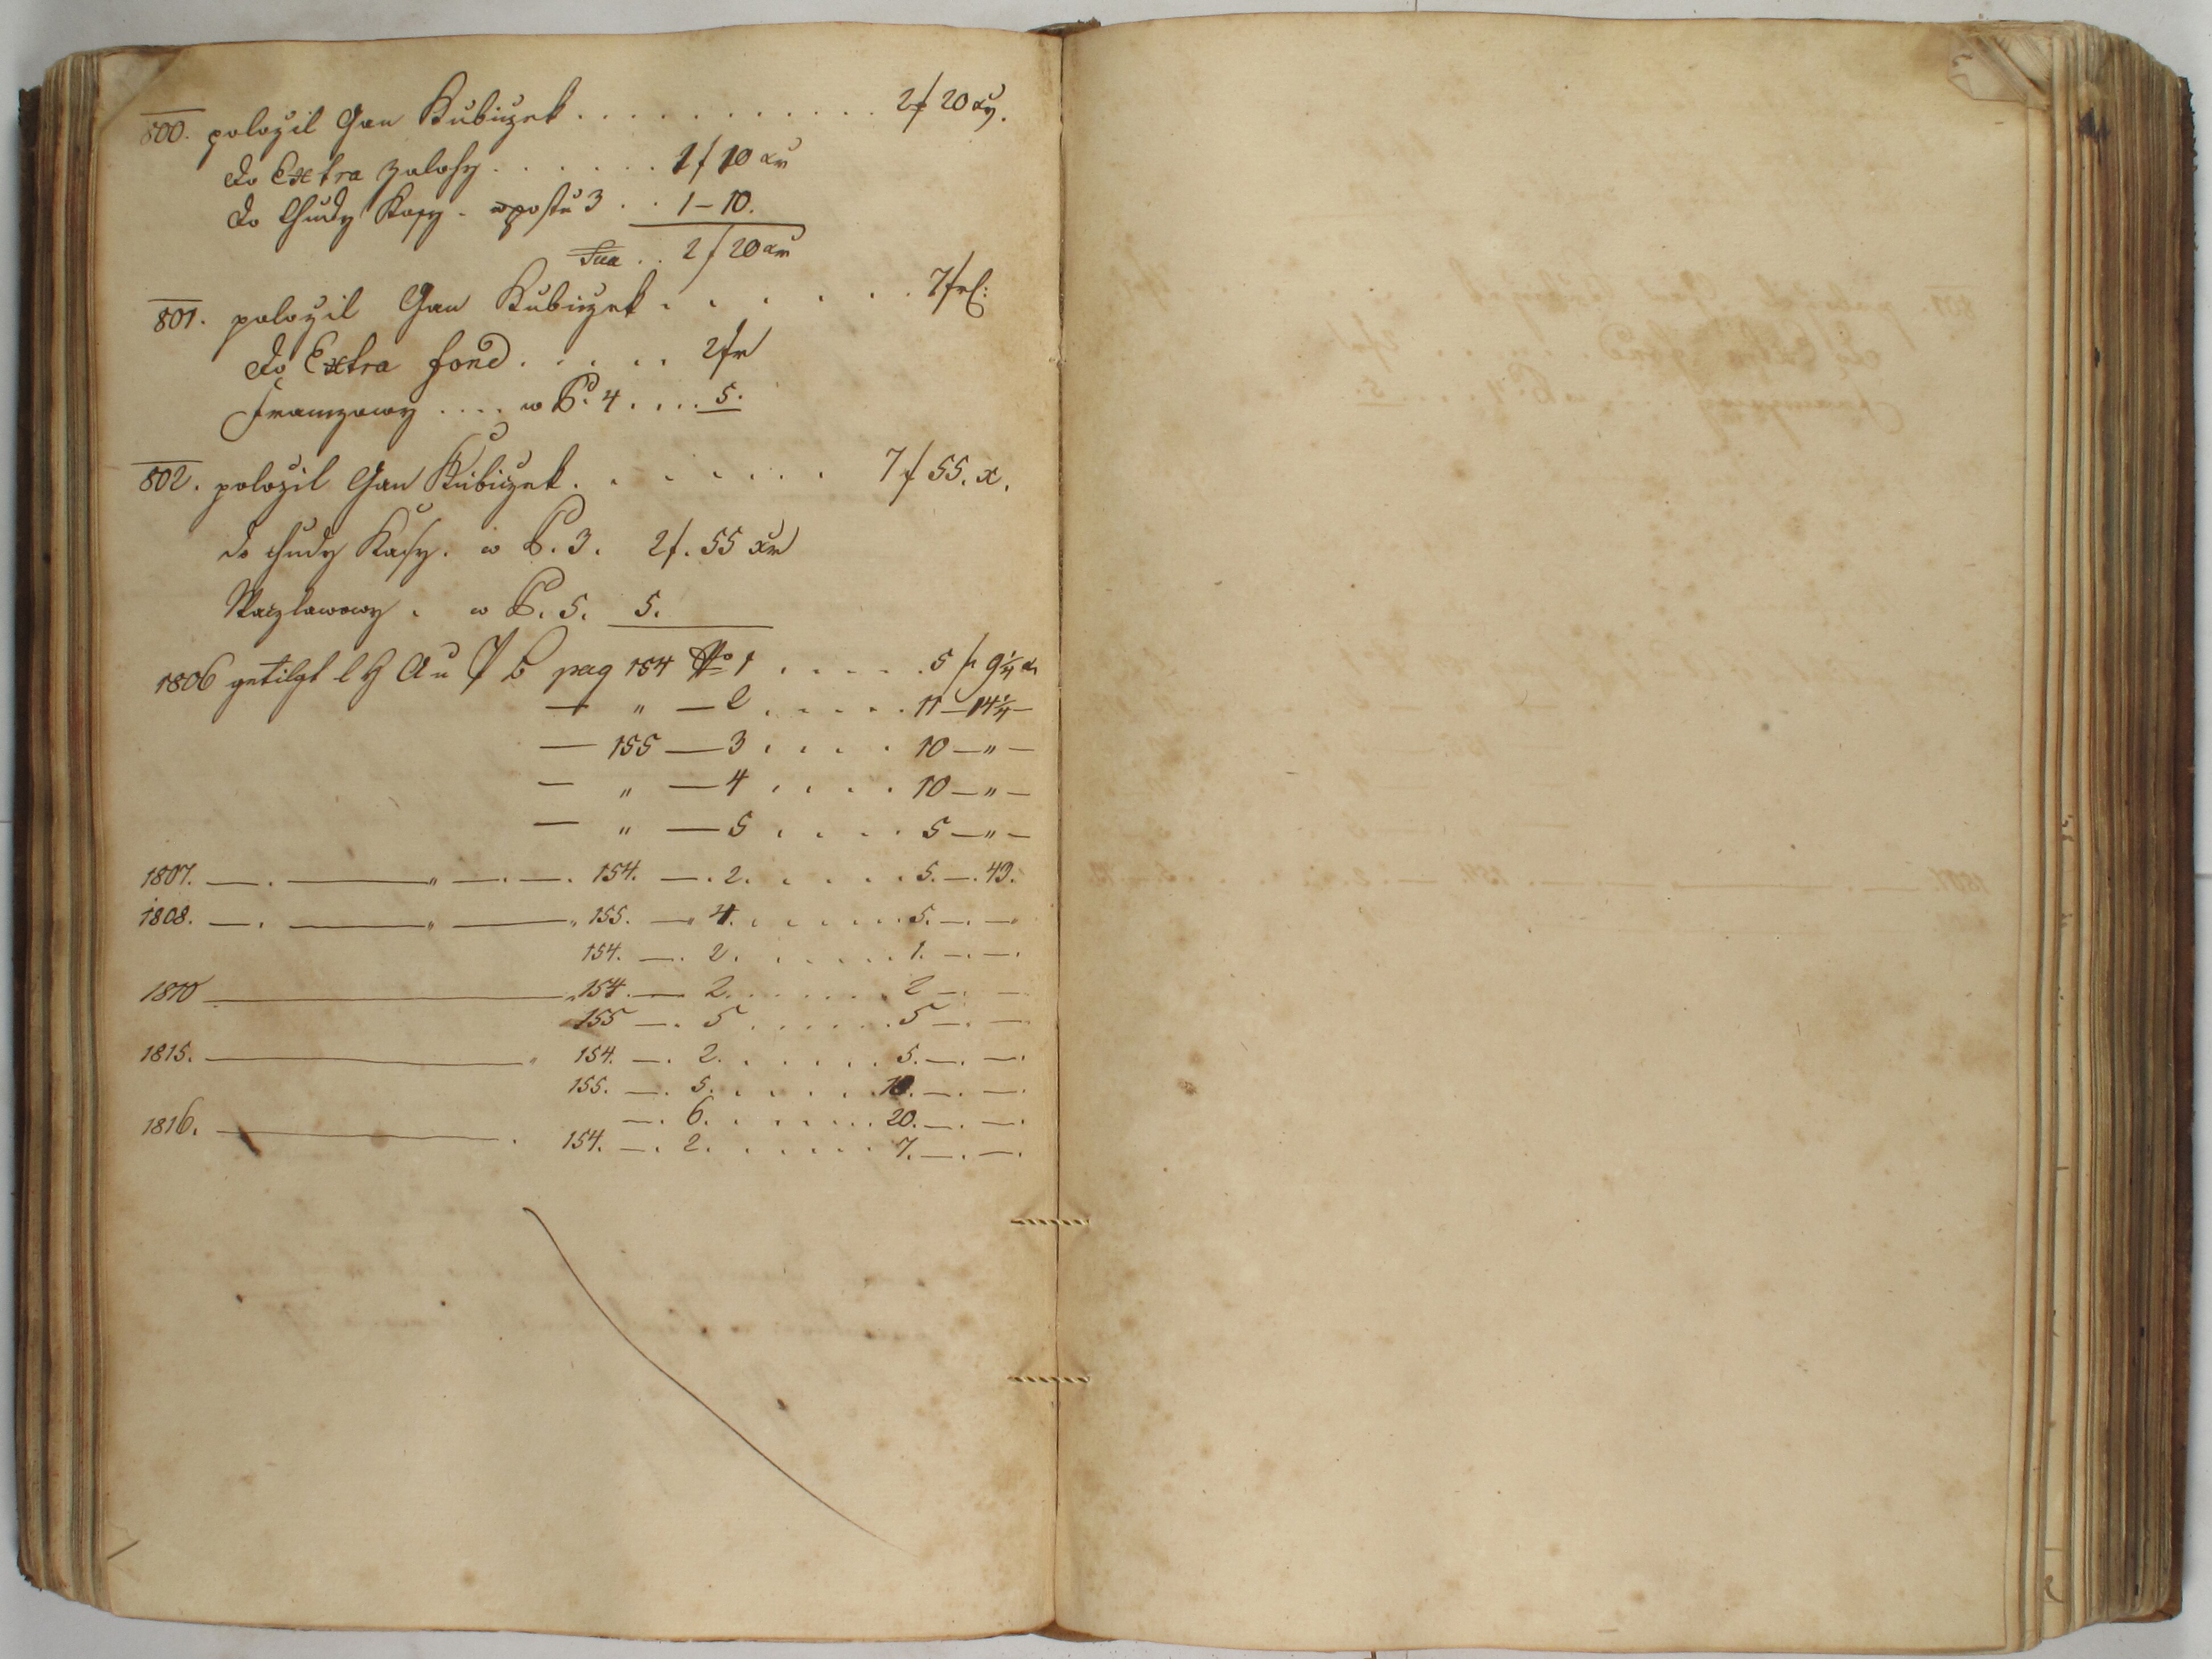 800. položil Gan Kubiczek . . . . . . . . . . . 2 f 20 xr.
do Extra zalohy . . . . . . 1 f 10 xr
do Chudy Kasy - w postu 3 . . 1 – 10.
Sua . . 2 f 20 xr
801. položil Gan Kubiczek . . . . . . 7 fr:
do Extra fond . . . . . 2 fr
Franzowy . . . . w P. 4 . . . . 5.
802. položil Gan Kubiczek . . . . . . . 7 f 55. x.
do chudy Kasy. w P. 3. 2 f. 55 xr
Waczlawowy . w P. 5. 5.
1806 getilgt l H A u B pag 154 No 1 . . . . . 5 f 9 1/4 x
— " — 2 . . . . . 11 — 14 1/4 —
— 155 — 3 . . . . 10 — " —
— " — 4 . . . . 10 — " —
— " — 5 . . . . 5 — " —
1807. — . — " — . — . 154. — . 2. . . . . 5. — . 43.
1808. — . — " — " 155. — " 4. . . . . . . 5. — . — "
154. — . 2. . . . . . . 1. — . — .
1810 — " 154. — 2. . . . . . . 2 — . —
155 — . 5 . . . . . . 5 — . —
1815. — " 154. — . 2. . . . . . . 5. — . — .
155. — . 5. . . . . . 10. — . — .
— . 6. . . . . . . 20. — . — .
1816. — . 154. — . 2. . . . . . . 7. — . — .